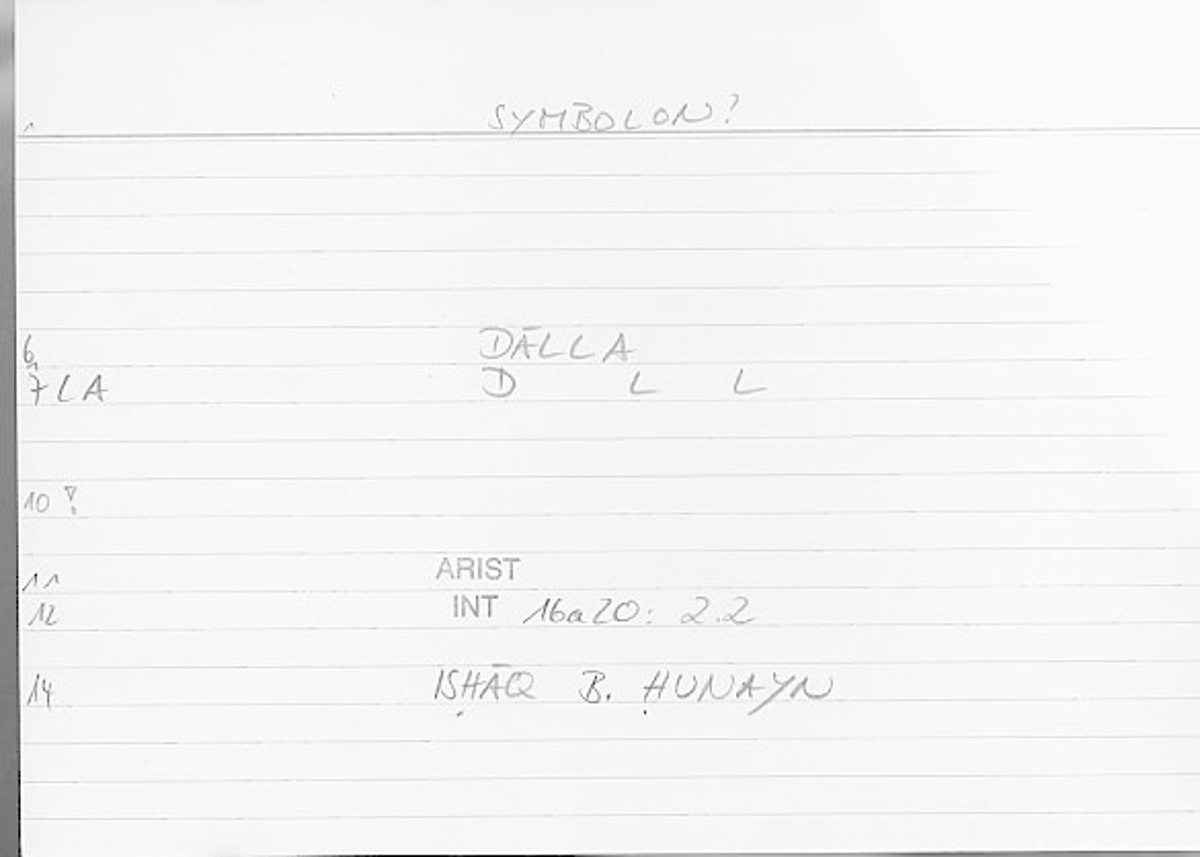 1 SYMBOLON?
6 DĀLLA
7 LA D L L
10 !
11 ARIST
12 INT 16a20: 2.2
14 ISḤĀQ B. ḤUNAYN